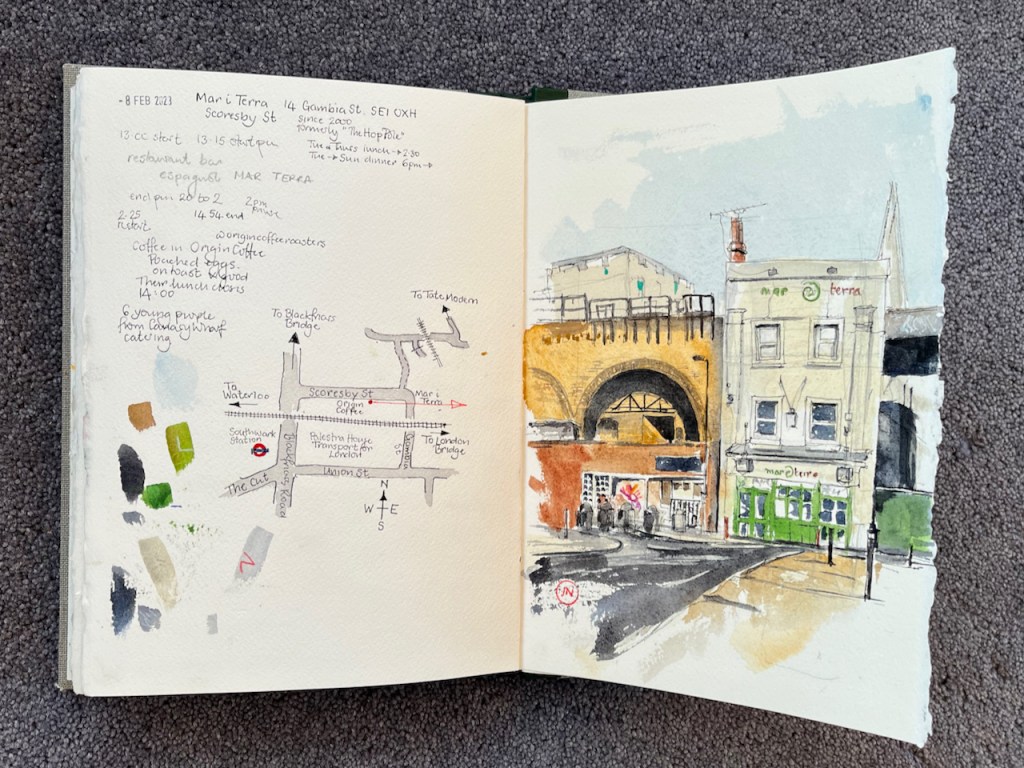 -8 FEB 2023
Mar i Terra 14 Gambia St. SE1 0XH
Scoresby St
since 2000
formerly "The Hop Pole"
Tue → Thurs lunch → 2.30
Tue → Sun dinner 6pm →
start 13.15 start pen
restaurant bar
espagnol MAR TERRA
end pen 20 to 2
2pm
2.25
restart
14 54 end
@origincoffeeroasters
Coffee in Origin Coffee
Poached eggs.
on toast
good
Their lunch
14:00
6 young people
from Canary Wharf
catering
To Tate Modern
To Blackfriars
Bridge
To
Waterloo
Scoresby St
Origin
Coffee
Mar i
Terra
Southwark
Station
Blackfriars Road
Palestra House
Transport for
London
Gambia
St
To London
Bridge
The Cut
Union St
N
W E
S
mar terra
mar terra
JN